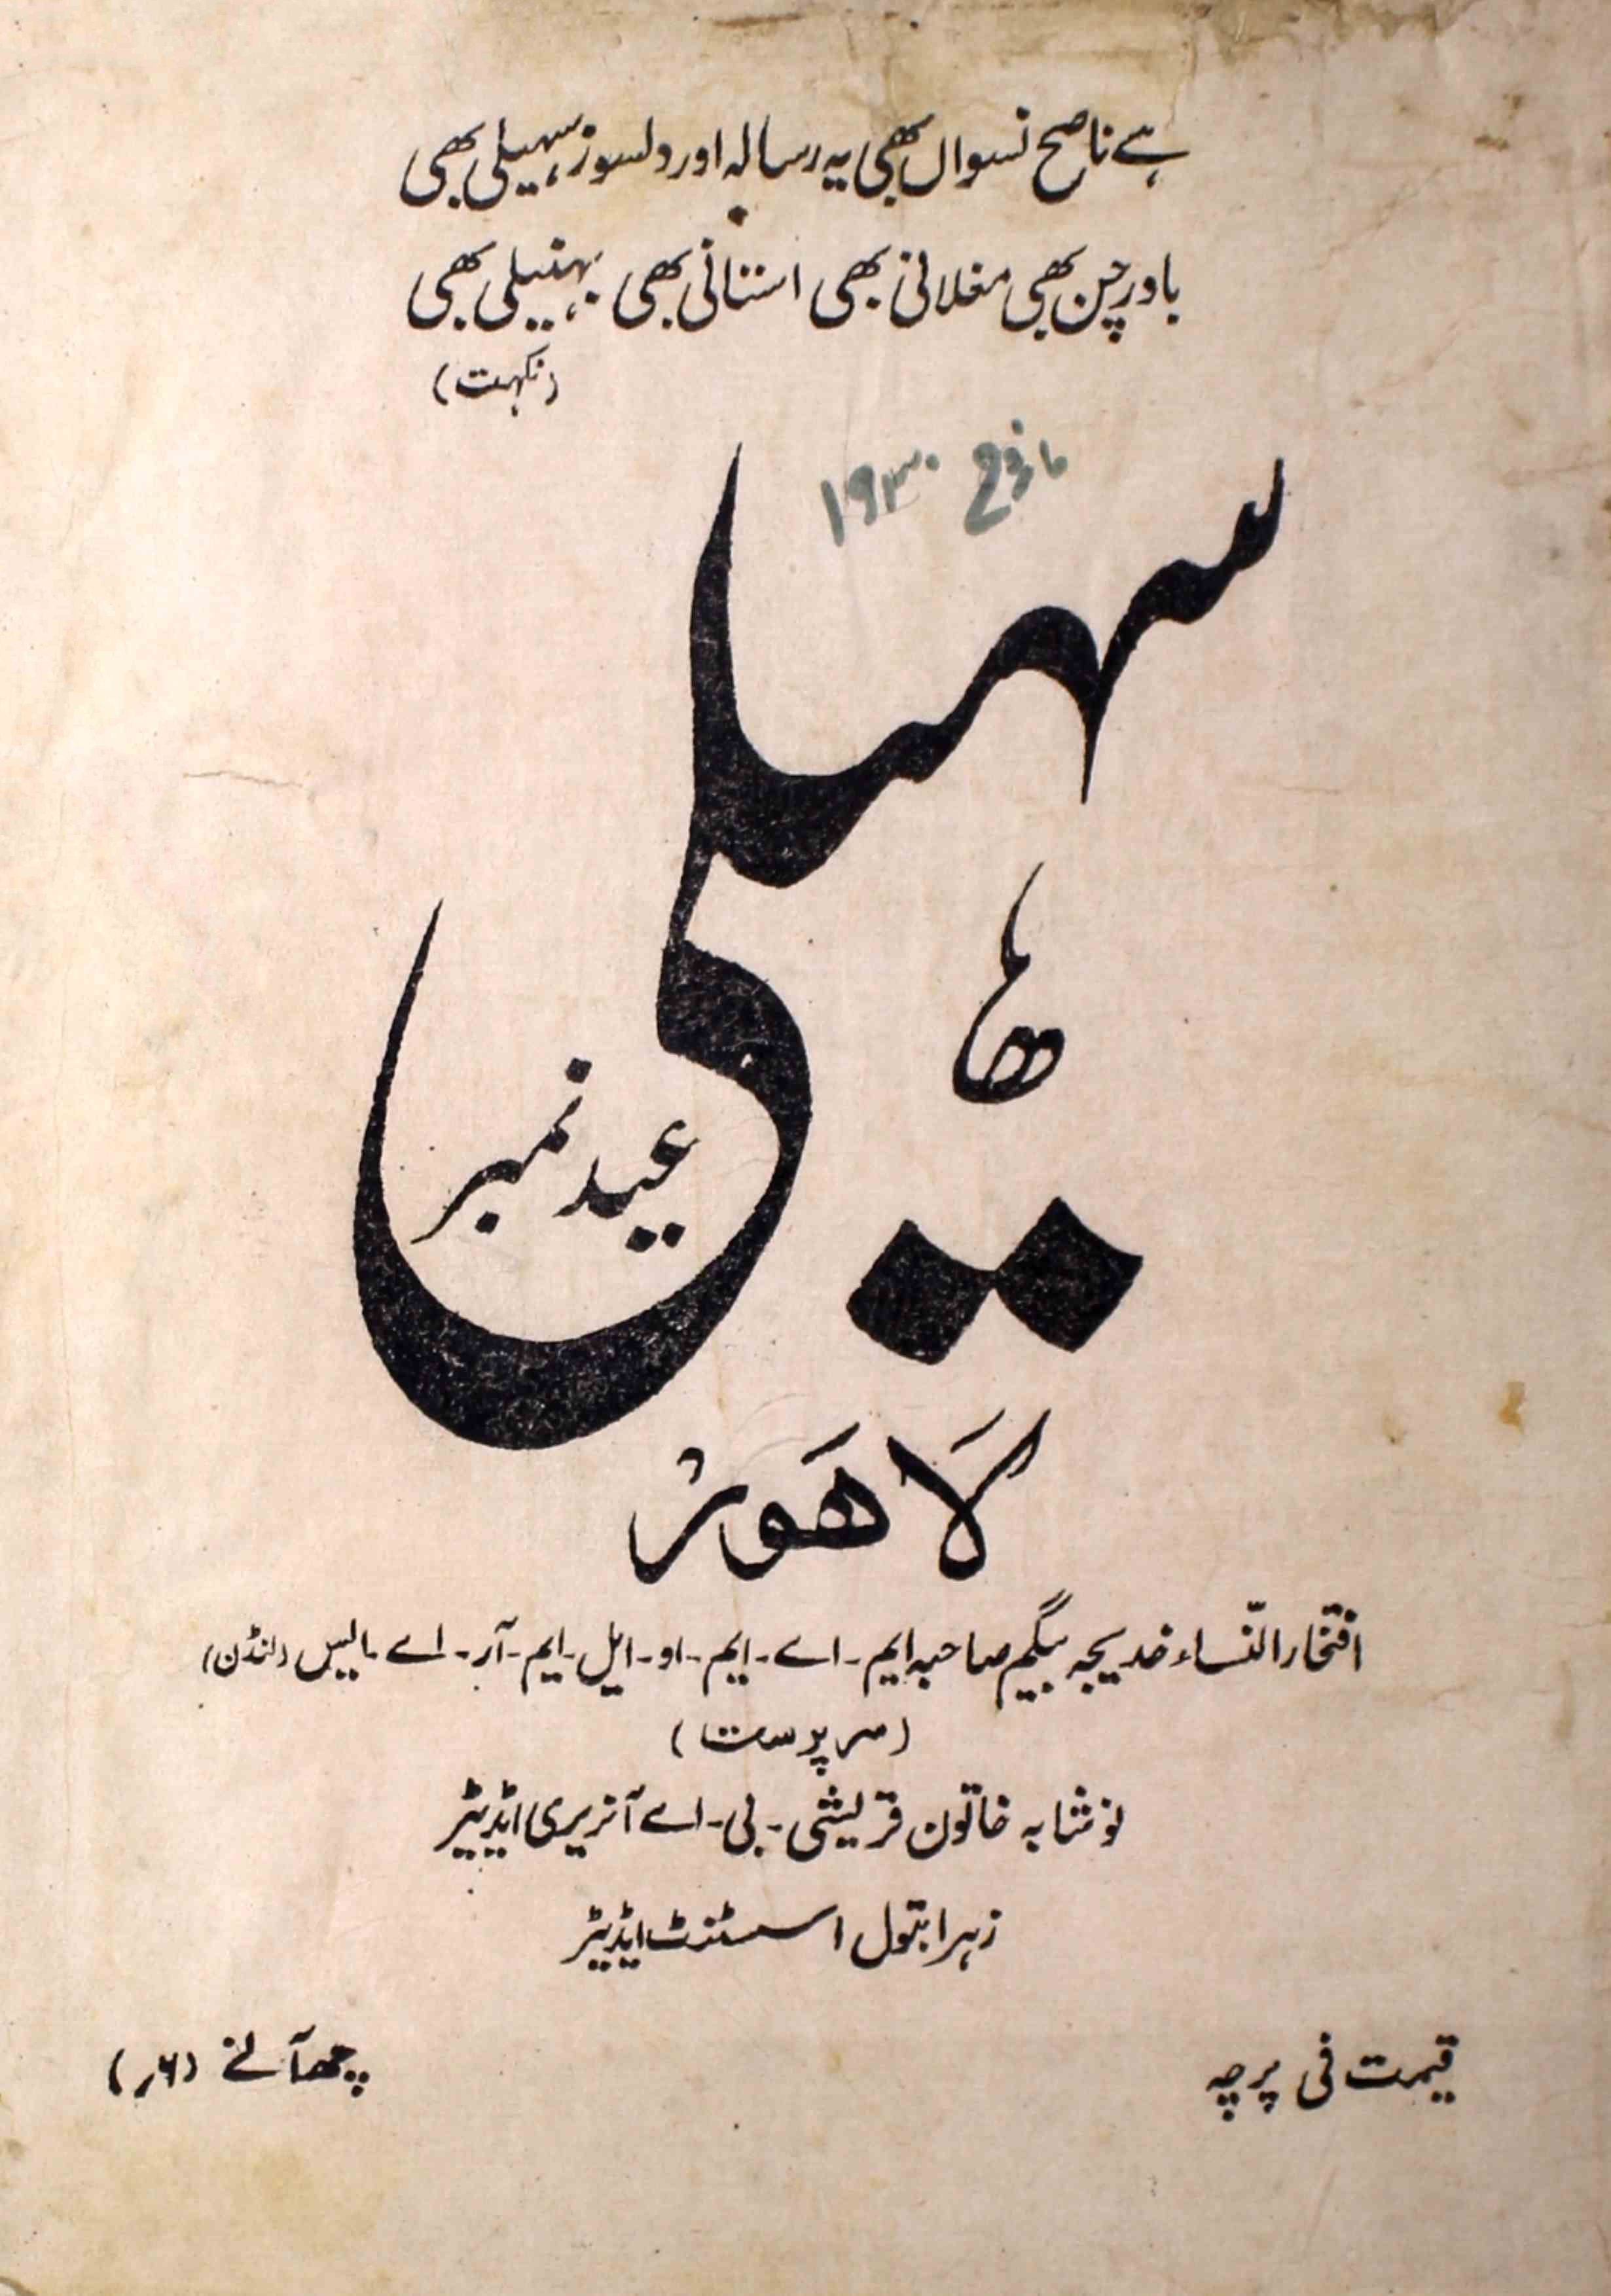 ہے ناصح نسواں بھی یہ رسالہ اور دلسوز سہیلی بھی
باورچن بھی مغلانی بھی استانی بھی بہنیلی بھی
(نکہت)
مارچ ۱۹۳۰
سہیلی
عید نمبر
لَاھَور
افتخار النّساء خدیجہ بیگم صاحبہ ایم۔اے۔ایم۔او۔ایل۔ایم۔آر۔اے۔ایس (لنڈن)
(سرپرست)
نوشابہ خاتون قریشی۔بی۔اے آنریری ایڈیٹر
زہرا بتول اسسٹنٹ ایڈیٹر
قیمت فی پرچہ چھ آنے (۶؍)